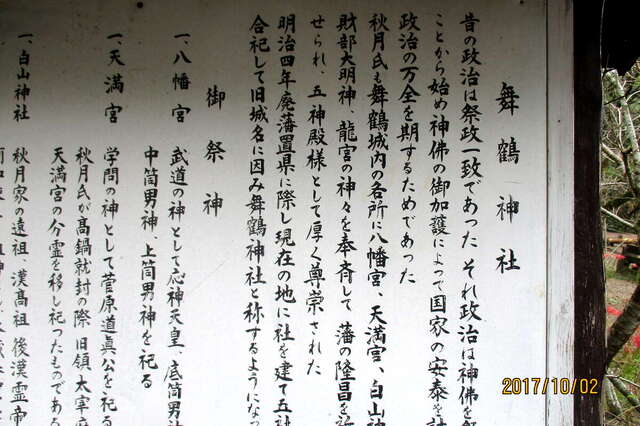 舞鶴神社
昔の政治は祭政一致であった それ政治は神佛を
ことから始め神佛の御加護によって国家の安泰を
政治の万全を期するためであった
秋月氏も舞鶴城内の各所に八幡宮、天満宮、白山神
財部大明神、龍宮の神々を奉斉して 藩の隆昌を
せられ、五神殿様として厚く尊崇された
明治四年廃藩置県に際し現在の地に社を建て五社
合祀して旧城名に因み舞鶴神社と称するようにな
御祭神
一、八幡宮 武道の神として応神天皇、底筒男
中筒男神、上筒男神を祀る
一、天満宮 学問の神として菅原道眞公を祀る
秋月氏が高鍋就封の際 旧領、太宰府
天満宮の分霊を移し祀ったものである
一、白山神社 秋月家の遠祖、漢高祖 後漢霊帝
2017/10/02